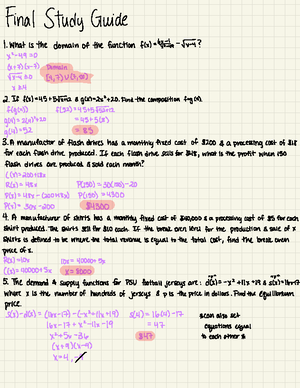 Final Study Guide
1. What is the domain of the function f(x) =
x²-49=0
(x+7)(x-7) Domain
x≥4
2. If f(x)=45+5√x+12 & g(x)=2x²+20. Find the composition f∘g(4).
f(g(4)) f(52)=45+5√52+12
g(4)=2(4)²+20 =45+5(8)
g(4)=52 = 85
3. A manufactor of flash drives has a monthly fixed cost of $200 & a processing cost of $18
for each flash drive produced. If each flash drive sells for $48, what is the profit when 150
flash drives are produced & sold each month?
C(x)=200+18x
R(x)=48x P(150)=30(150)-200
P(x)=48x-(200+18x) P(150)=4300
P(x)=30x-200 $4300
4. A manufacturer of shirts has a monthly fixed cost of $40,000 & a processing cost of $5 for each
shirt produced. The shirts sell for $10 each. If the break even level for the production & sale of x
shirts is defined to be where the total revenue is equal to the total cost, find the break even
point of x.
R(x)=10x 10x=40000+5x
C(x)=40000+5x x=8000
5. The demand & supply functions for PSU football jerseys are: d(x)=-x²+11x+19 & s(x)=16x-17
where x is the number of hundreds of jerseys & p is the price in dollars. Find the equilibrium
price.
s(x)-d(x)=(16x-17)-(-x²+11x+19) s(4)=16(4)-17 *can also set
16x-17+x²-11x-19 =47 equations equal
x²+5x-36 $47 to each other*
(x+9)(x-4)
x=4, -9